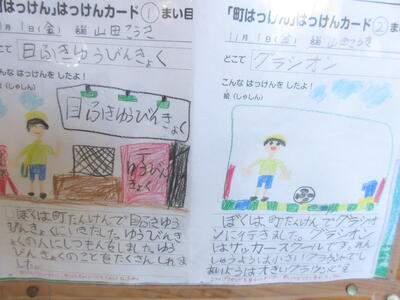 「町はっけん」はっけんカード① まい目
11月1日(金) 名前 山田こうき
どこで 目ふきゆうびんきょく
こんな はっけんを したよ!
絵(しゃしん)
目ふきゆうびんきょく
ゆうびんきょく
ぼくは町たんけんで目ふきゆう
びんきょくにいきました。ゆうびんき
ょくの人にしつもんをしました。ゆう
びんきょくのことをたくさんしれま
した。
「町はっけん」はっけんカード② まい
11月1日(金) 名前
どこで グランオン
こんな はっけんを したよ!
絵(しゃしん)
ぼくは、町たんけんでグランオ
ンに行きました。グランオン
はサッカースクールです。れん
しゅうようは小さいグラウンドでし
あいようは大きいグラウンド